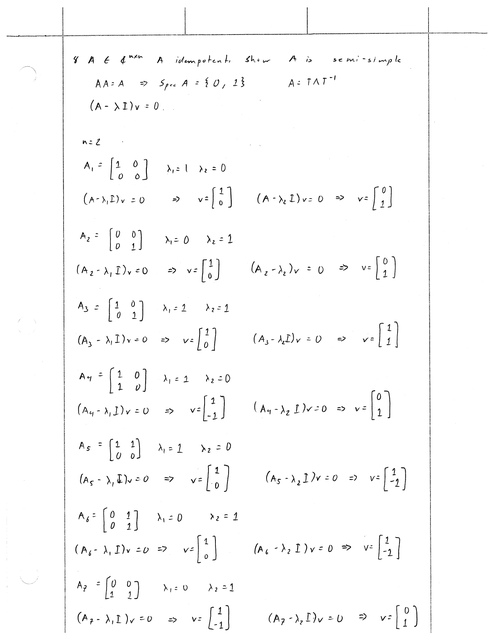 8 A ∈ ℂⁿˣⁿ A idempotent. Show A is semi-simple
AA = A ⇒ Spec A = {0, 1} A = TΛT⁻¹
(A - λI)v = 0.
n=2
A₁ = [1 0; 0 0] λ₁=1 λ₂=0
(A-λ₁I)v=0 ⇒ v=[1; 0] (A-λ₂I)v=0 ⇒ v=[0; 1]
A₂ = [0 0; 0 1] λ₁=0 λ₂=1
(A₂-λ₁I)v=0 ⇒ v=[1; 0] (A₂-λ₂)v = 0 ⇒ v=[0; 1]
A₃ = [1 0; 0 1] λ₁=1 λ₂=1
(A₃-λ₁I)v=0 ⇒ v=[1; 0] (A₃-λ₂I)v=0 ⇒ v=[1; 1]
A₄ = [1 0; 1 0] λ₁=1 λ₂=0
(A₄-λ₁I)v=0 ⇒ v=[1; -1] (A₄-λ₂I)v=0 ⇒ v=[0; 1]
A₅ = [1 1; 0 0] λ₁=1 λ₂=0
(A₅-λ₁I)v=0 ⇒ v=[1; 0] (A₅-λ₂I)v=0 ⇒ v=[1; -1]
A₆ = [0 1; 0 1] λ₁=0 λ₂=1
(A₆-λ₁I)v=0 ⇒ v=[1; 0] (A₆-λ₂I)v=0 ⇒ v=[1; -1]
A₇ = [0 0; 1 1] λ₁=0 λ₂=1
(A₇-λ₁I)v=0 ⇒ v=[1; -1] (A₇-λ₂I)v=0 ⇒ v=[0; 1]